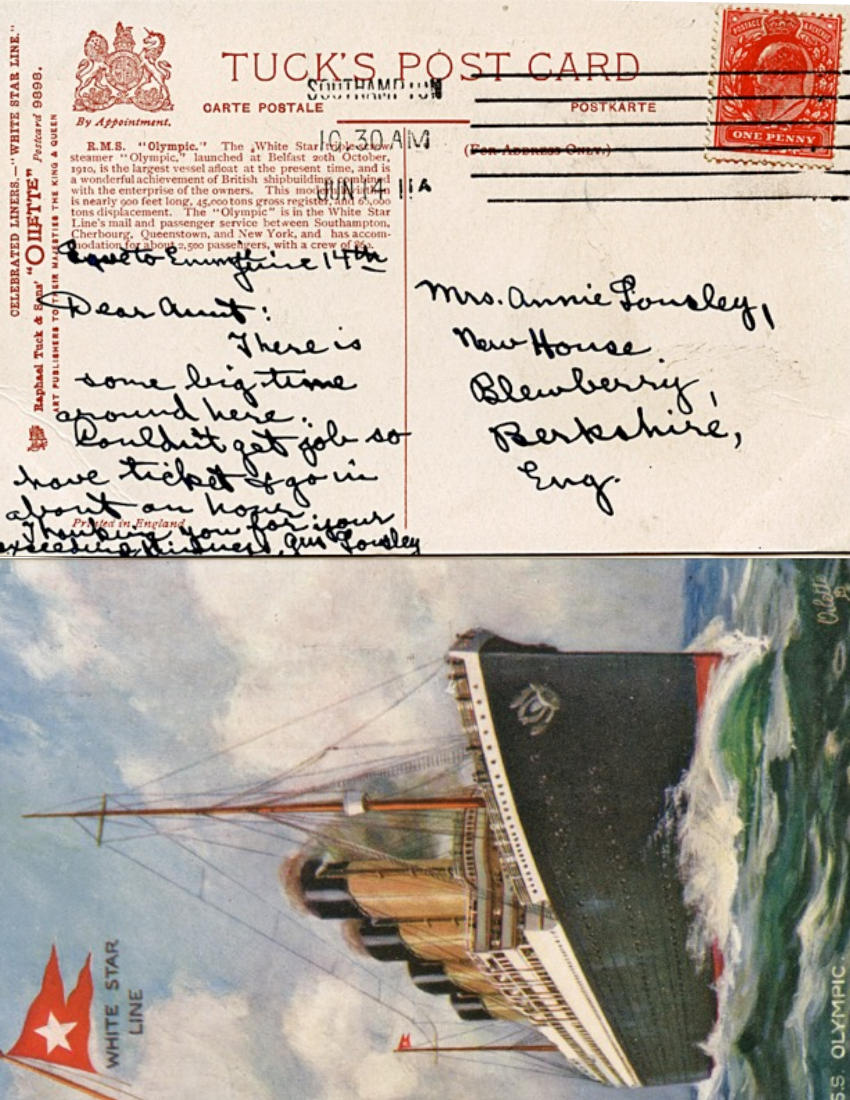 CELEBRATED LINERS.—"WHITE STAR LINE."
Raphael Tuck & Sons' "OILETTE" Postcard 9898.
ART PUBLISHERS TO THEIR MAJESTIES THE KING & QUEEN
By Appointment.
TUCK'S POST CARD
CARTE POSTALE
POSTKARTE
(For Address Only.)
SOUTHAMPTON
10.30 AM
JUN 14 11
ONE PENNY
R.M.S. "Olympic." The White Star triple-screw
steamer "Olympic," launched at Belfast 20th October,
1910, is the largest vessel afloat at the present time, and is
a wonderful achievement of British shipbuilding combined
with the enterprise of the owners. This modern
is nearly 900 feet long, 45,000 tons gross register, and 60,000
tons displacement. The "Olympic" is in the White Star
Line's mail and passenger service between Southampton,
Cherbourg, Queenstown, and New York, and has accom-
modation for about 2,500 passengers, with a crew of 860.
June 14th
Dear Aunt:
There is
some big time
around here.
Couldn't get job so
have ticket & go in
about an hour
Thanking you for your
exceeding kindness, Gus Lousley
Printed in England
Mrs. Annie Lousley,
New House
Blewberry,
Berkshire,
Eng.
WHITE STAR
LINE
Oilette
S.S. OLYMPIC.